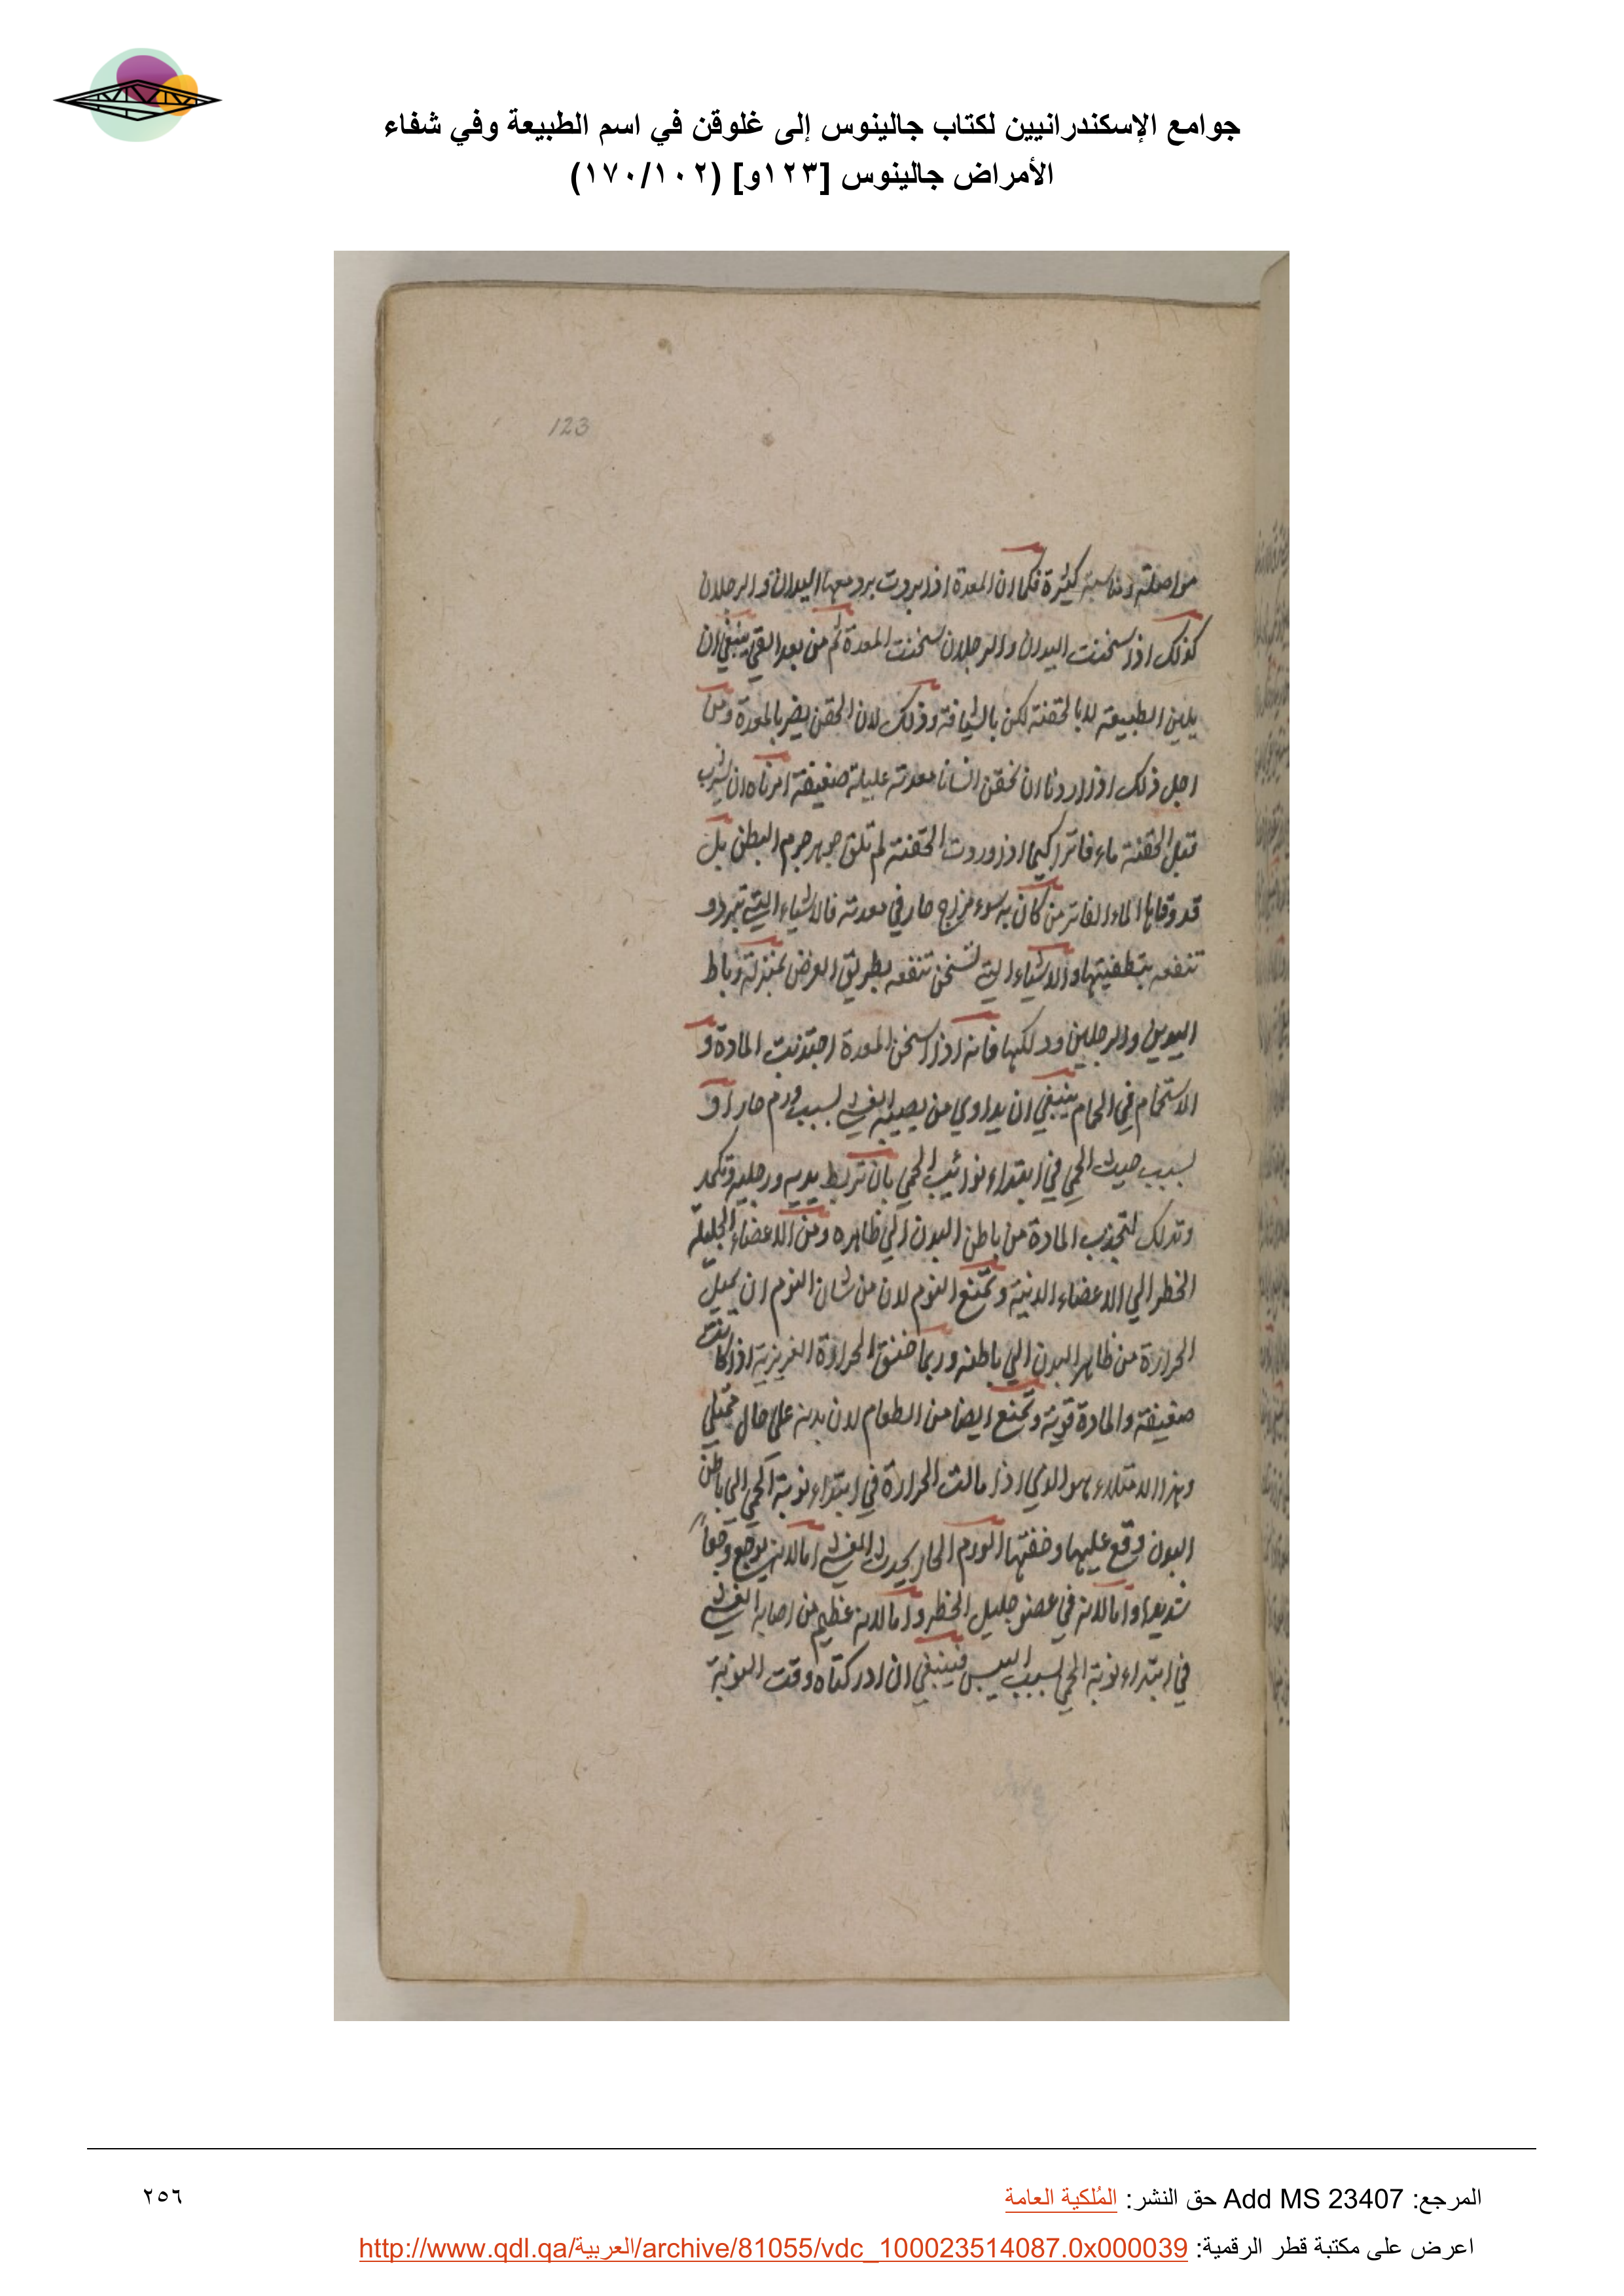 جوامع الإسكندرانيين لكتاب جالينوس إلى غلوقن في اسم الطبيعة وفي شفاء
الأمراض جالينوس [١٢٣و] (١٧٠/١٠٢)
123
مواصلة ومناسبة كثيرة فكما ان المعدة اذا بردت برد معها اليدان والرجلان
كذلك اذا سخنت اليدان والرجلان سخنت المعدة ثم من بعد القي ينبغي ان
يلين الطبيعة لا بالحقنة لكن بالشيافة وذلك لان الحقن يضر بالمعدة ومن
اجل ذلك اذا اردنا ان نحقن انسانا معدته عليلة ضعيفة امرناه ان يشرب
قبل الحقنة ماء فاترا كيما اذا وردت الحقنة لم تلق جوهر جرم البطن بل
قد وقاها الماء الفاتر من كان به سوء مزاج حار في معدته فالاشياء التي تبرد و
تنفعه بتطفيتها والاشياء التي تسخن تنفعه بطريق العرض بمنزلة رباط
اليدين والرجلين ودلكها فانه اذا اسخن المعدة اجتذبت المادة و
الاستحمام في الحمام ينبغي ان يداوي من يصيبه الغشي بسبب ورم حار او
بسبب خبث الحمي في ابتداء نوائب الحمي بان تربط يديه ورجليه وتكمد
وتدلك لتجذب المادة من باطن البدن الي ظاهره ومن الاعضاء الجليلة
الخطر الي الاعضاء الدنية وتمنع النوم لان من شان النوم ان يميل
الحرارة من ظاهر البدن الي باطنه وربما خنق الحرارة الغريزية اذا كانت
ضعيفة والمادة قوية وتمنع ايضا من الطعام لان بدنه علي حال ممتلي
وهذا الامتلاء هو الذي اذا مالت الحرارة في ابتداء نوبة الحمي الي باطن
البدن وقع عليها وخنقها الورم الحار يحدث الغشي اما لانه يوجع وجعاً
شديدا واما لانه في عضو جليل الخطر واما لانه عظيم من اصابه الغشي
في ابتداء نوبة الحمي بسبب اليبس فينبغي ان ادركناه وقت النوبة
المرجع: Add MS 23407 حق النشر: المُلكية العامة
٢٥٦
اعرض على مكتبة قطر الرقمية: http://www.qdl.qa/العربية/archive/81055/vdc_100023514087.0x000039